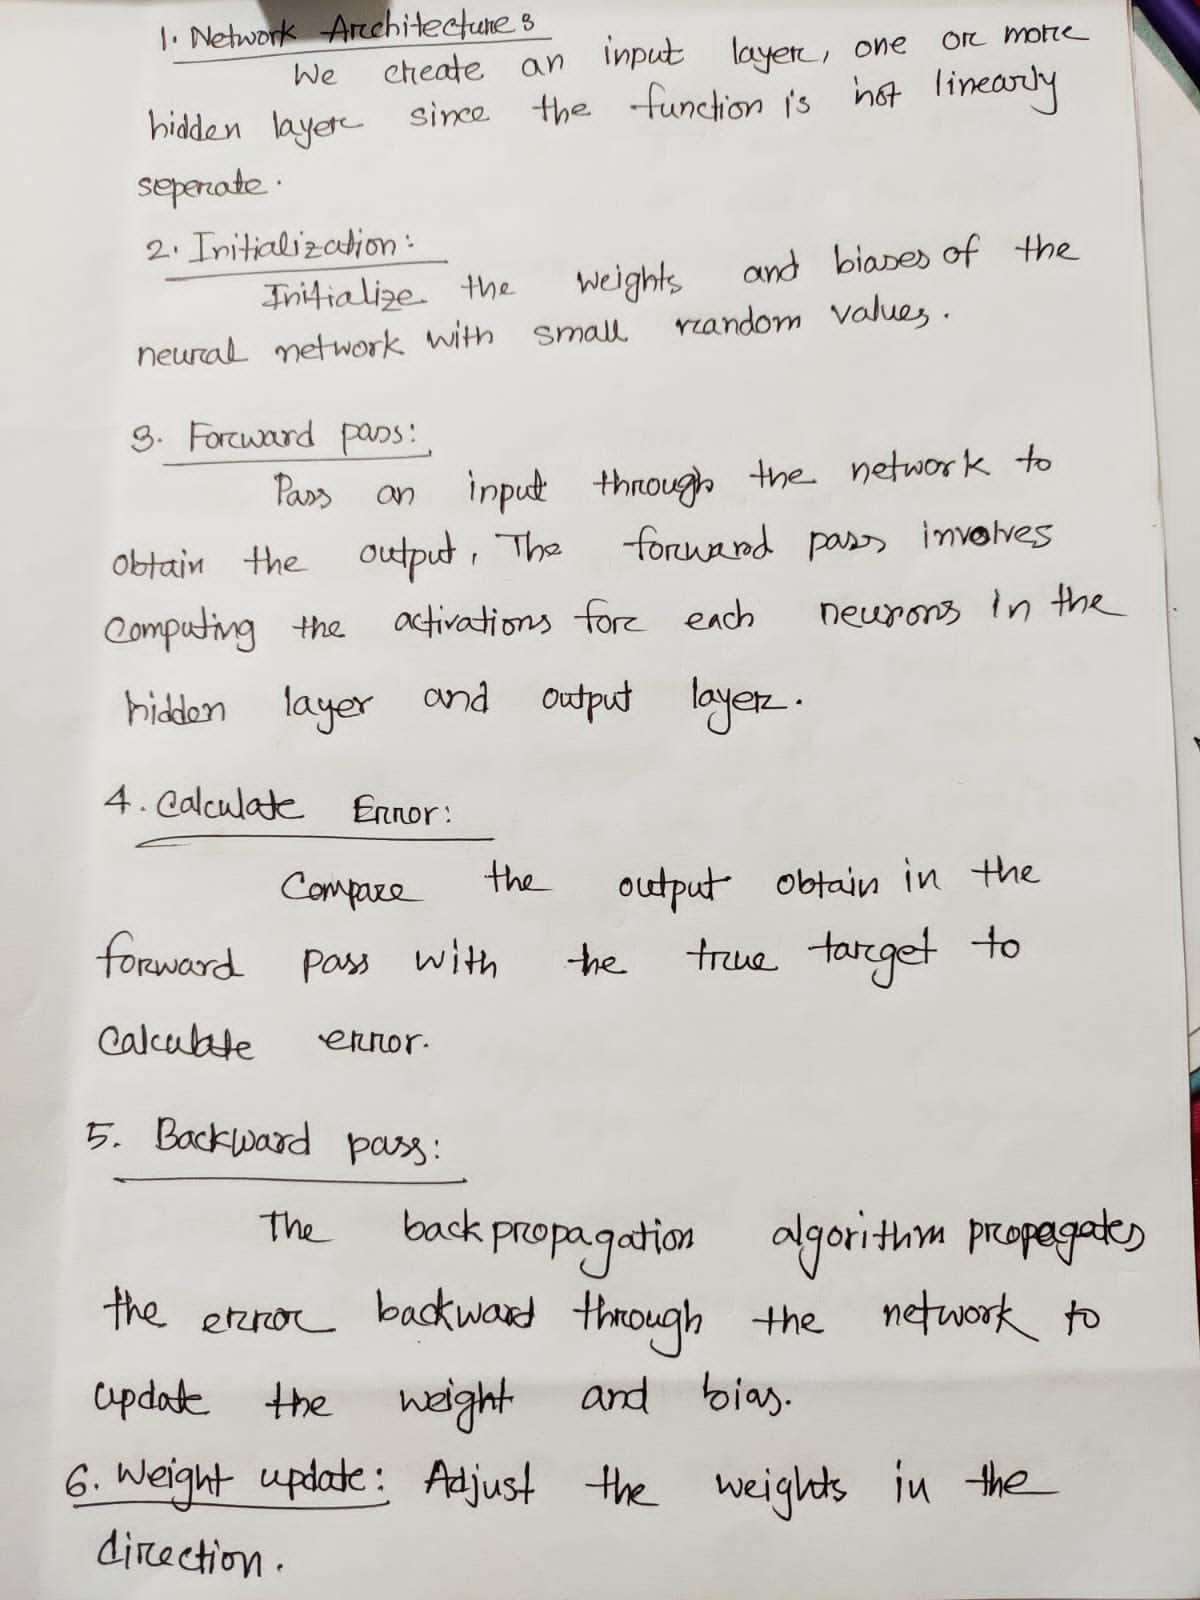 1. Network Architecture:
We create an input layer, one or more
hidden layer since the function is not linearly
seperate.
2. Initialization:
Initialize the weights and biases of the
neural network with small random values.
3. Forward pass:
Pass an input through the network to
obtain the output, The forward pass involves
computing the activations for each neurons in the
hidden layer and output layer.
4. Calculate Error:
Compare the output obtain in the
forward pass with the true target to
calculate error.
5. Backward pass:
The backpropagation algorithm propagates
the error backward through the network to
update the weight and bias.
6. Weight update: Adjust the weights in the
direction.